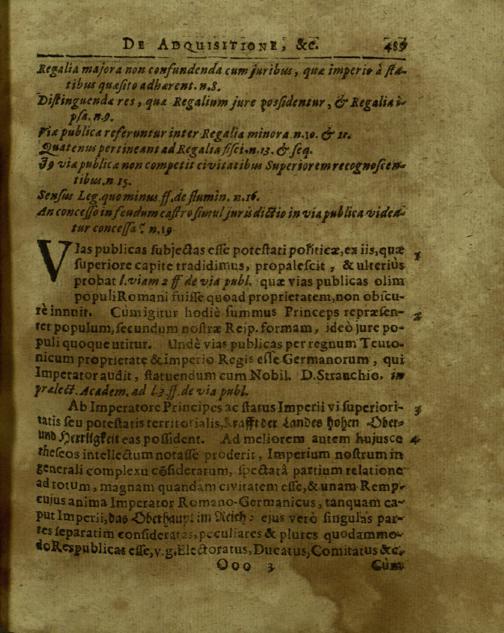 DE ADQUISITIONE, &c. 485
Regalia majora non confundenda cum juribus, quæ imperio à sta-
tibus quæsito adhærent. n.8.
Distinguenda res, quæ Regalium jure possidentur, & Regalia i-
psa. n.9.
Via publica referuntur inter Regalia minora n.10. & 11.
Quatenus pertineant ad Regalia fisci. n.13. & seq.
Jq via publica non competit civitatibus Superiorem recognoscen-
tibus. n 15.
Sensus Leg. quo minus ff. de flumin. n.16.
An concesso in feudum castro simul jurisdictio in via publica videa-
tur concessa? n.19
VIas publicas subjectas esse potestati politicæ, ex iis, quæ 1
superiore capite tradidimus, propalescit, & ulterius
probat l. viam 2 ff de via publ. quæ vias publicas olim
populi Romani fuisse quoad proprietatem, non obscu-
rè innuit. Cum igitur hodiè summus Princeps repræsen- 2
tet populum, secundum nostræ Reip. formam, ideò jure po-
puli quoque utitur. Undè vias publicas per regnum Teuto-
nicum proprietate & imperio Regis esse Germanorum, qui
Imperator audit, statuendum cum Nobil. D. Strauchio. in
prælect. Academ. ad l.3 ff. de via publ.
Ab Imperatore Principes ac status Imperii vi superiori- 3
tatis seu potestatis territorialis, Krafft der Landes hohen Ober-
und Herrligkeit eas possident. Ad meliorem autem hujusce 4
theseos intellectum notasse proderit, Imperium nostrum in
generali complexu cõsideratum, spectatâ partium relatione
ad totum, magnam quandam civitatem esse, & unam Remp.
cujus anima Imperator Romano-Germanicus, tanquam ca-
put Imperii, das Oberhaupt im Reich: ejus verò singulas par-
tes separatim consideratas, peculiares & plures quodammo-
do Respublicas esse, v.g. Electoratus, Ducatus, Comitatus &c.
Ooo 3 Cum